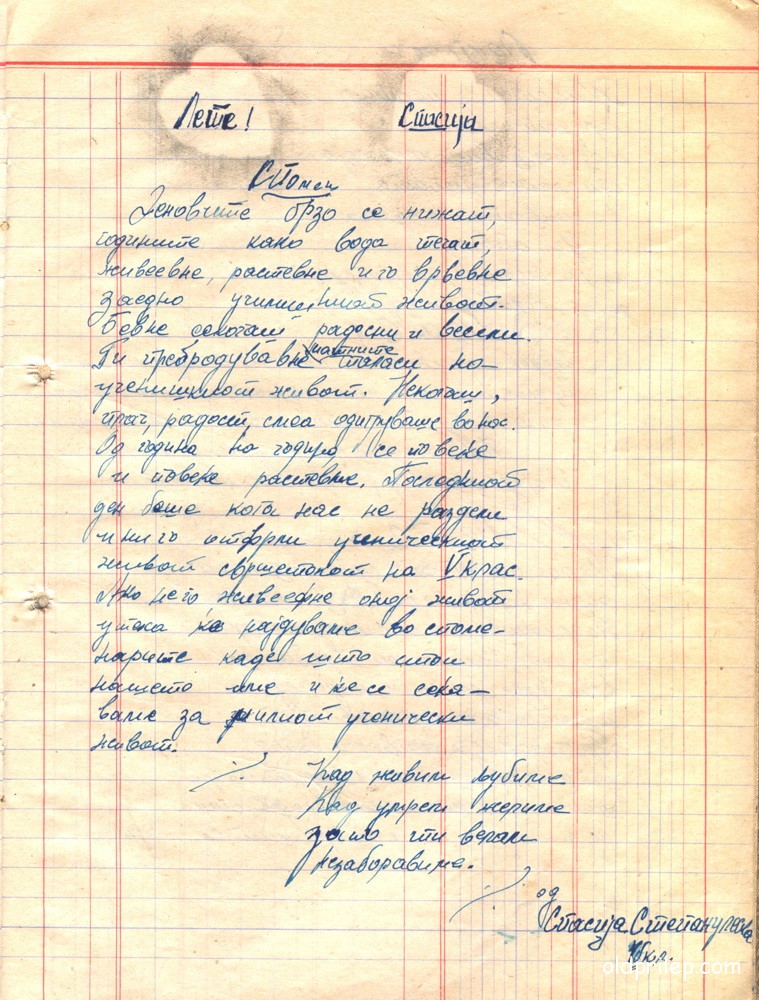 Лете! Стасија
Спомен
Деновите брзо се нижат,
годините како вода течат,
живеевме, растевме и го врвевме
заедно училишниот живот.
Бевме секогаш радосни и весели.
Ги пребродувавме матните таласи на
ученишкиот живот. Некогаш,
плач, радост, смеа одигруваше во нас.
Од година на година се повеќе
и повеќе растевме. Последниот
ден беше кога нас не раздели
и ни го отфрли ученическиот
живот свршетокот на V клас.
Ако него живеефме онај живот
утека ќе најдуваме во споме-
нарите каде што стои
нашето име и ќе се сека-
ваме за милиот ученически
живот.
Кад живим љуби ме
Кад умрем жери ме
за што ти велам
незаборави ме.
од
Стасија Степанулеска
кл.
oldprilep.com